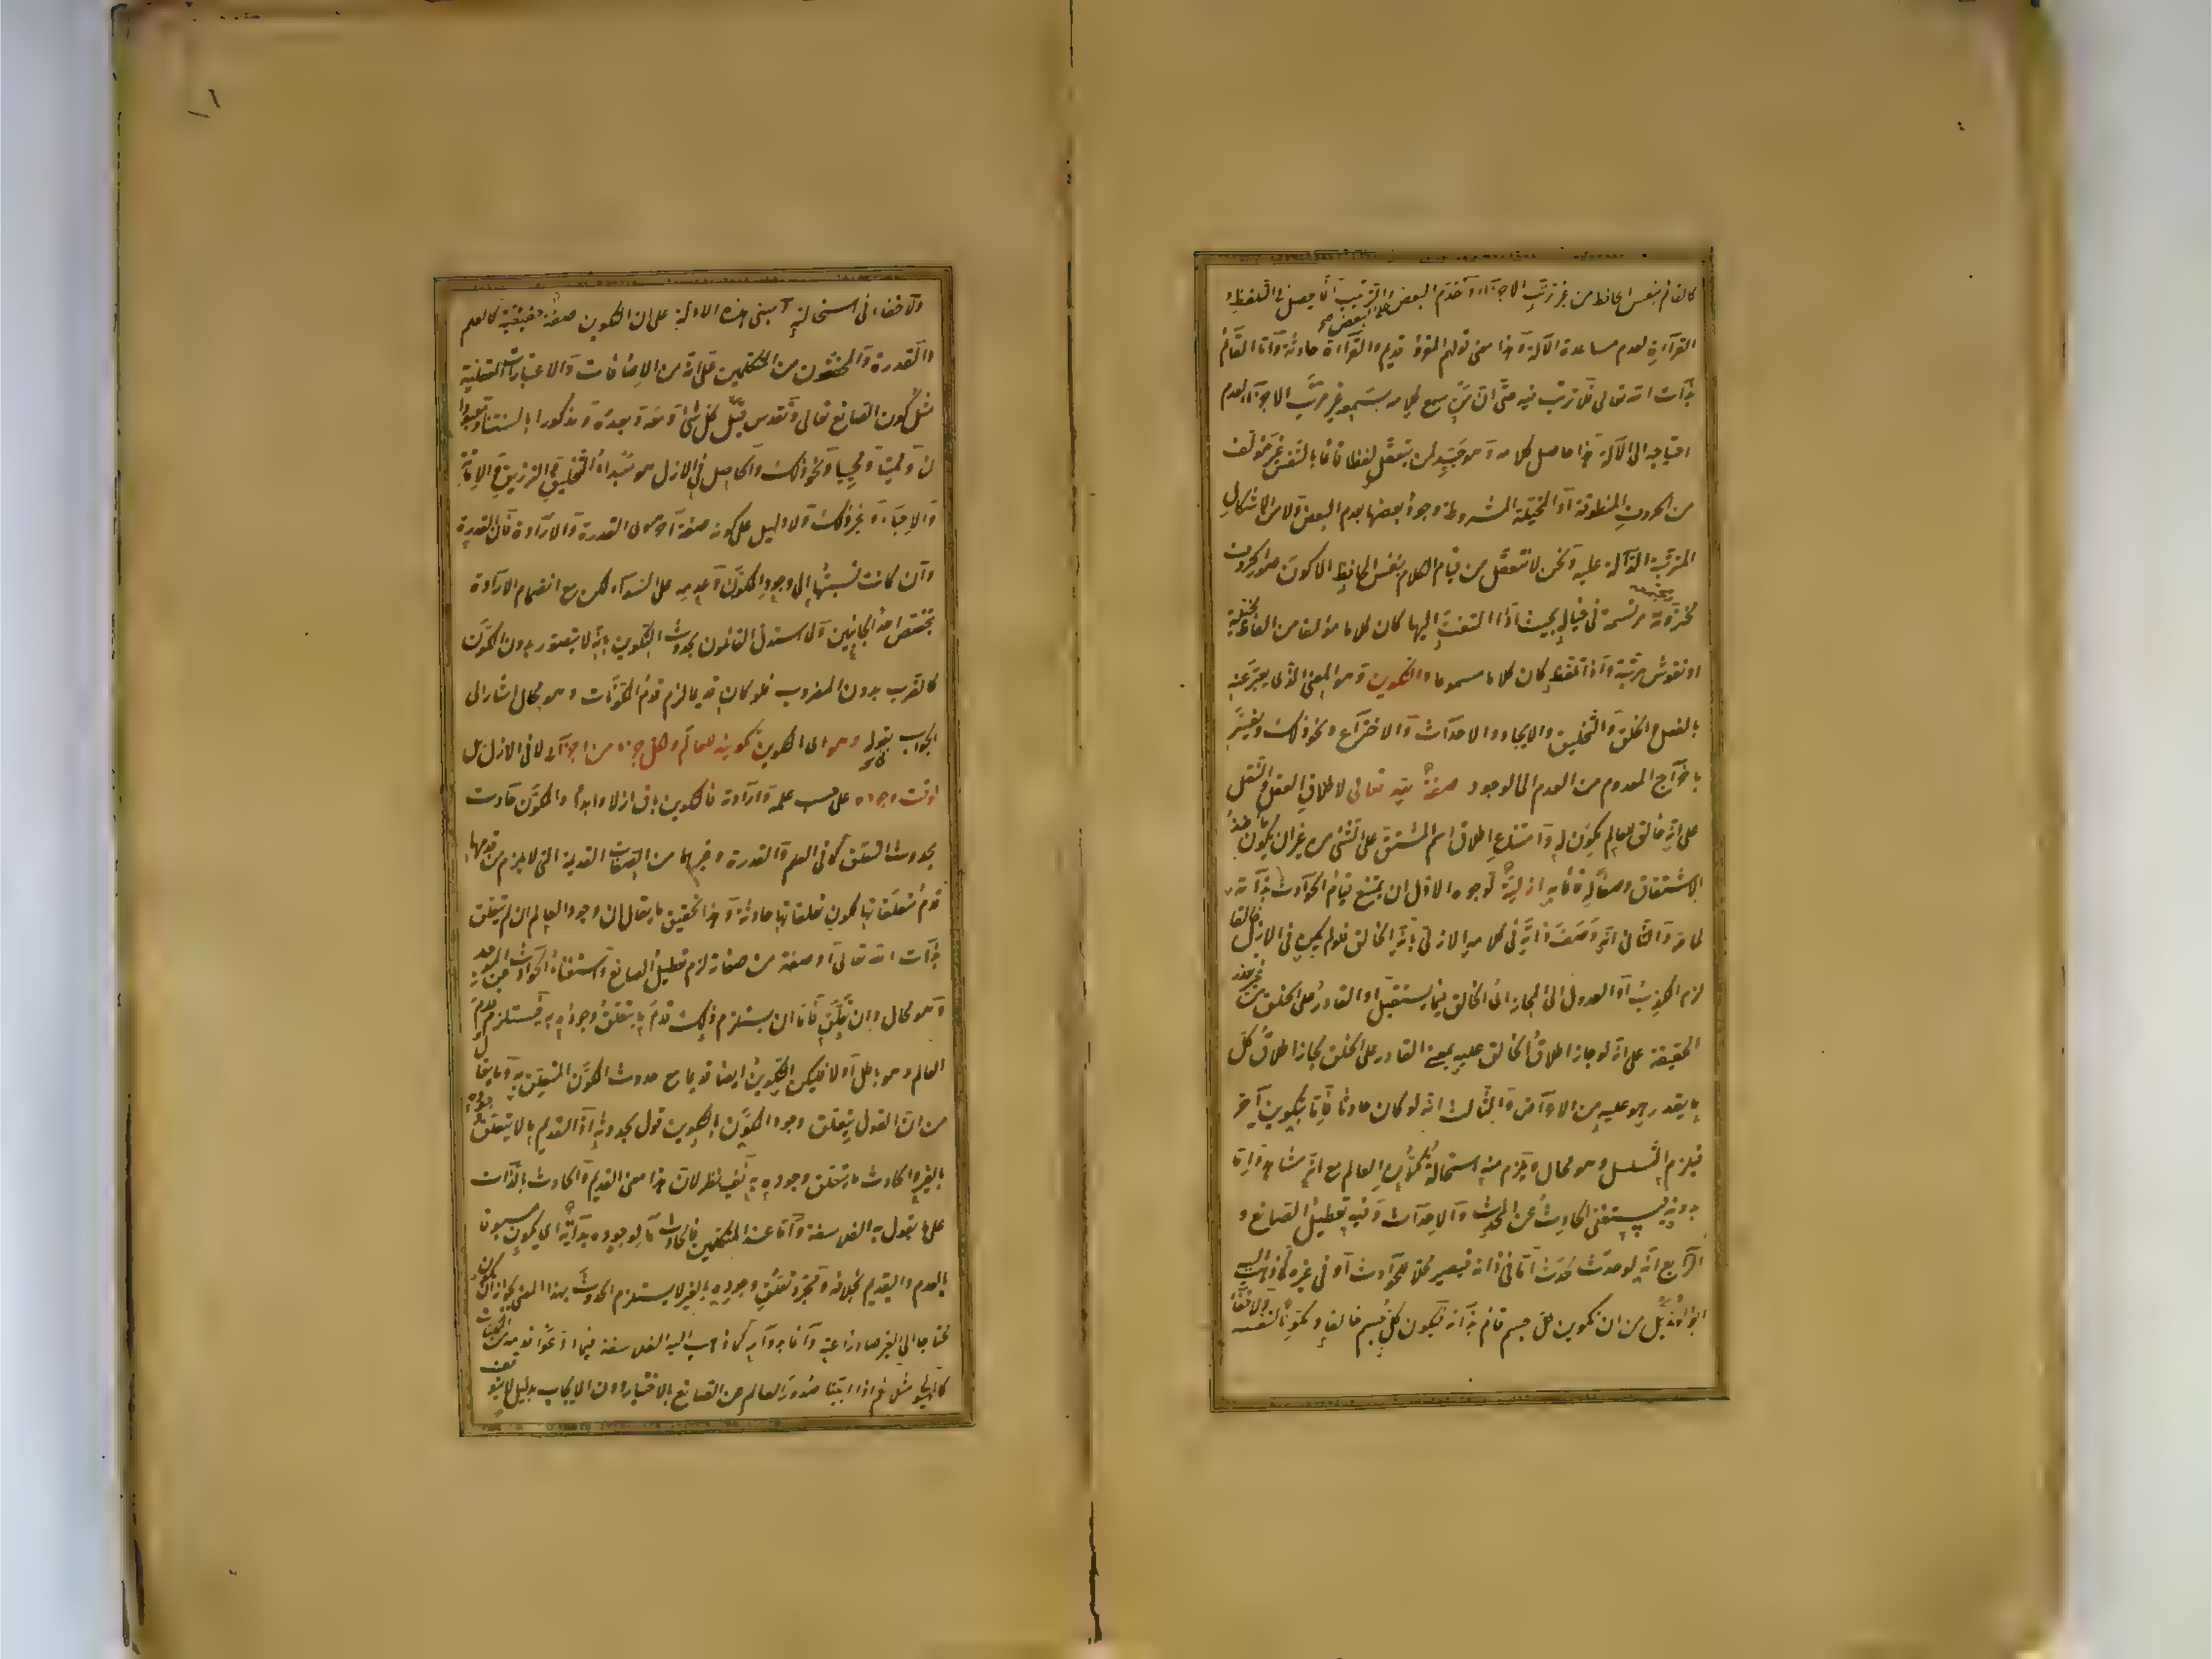 كالقائم بنفس الحافظ من غير ترتب الاجزاء وتقدم البعض على البعض والترتب انما يحصل في التلفظ و
القراءة لعدم مساعدة الآلة وهذا معنى قولهم المقروء قديم والقراءة حادثة واما القائم
بذات الله تعالى فلا ترتب فيه حتى ان من سمع كلامه سمعه غير مرتب الاجزاء لعدم
احتياجه الى الآلة هذا حاصل كلامه وهو جيد لمن يتعقل لفظا قائما بالنفس غير مؤلف
من الحروف المنطوقة او المخيلة المشروطة وجود بعضها بعدم البعض ولا من الاشكال
المترتبة الدالة عليه ونحن لا نتعقل من قيام الكلام بنفس الحافظ الا كون صور الحروف
مخزونة مرتسمة في خياله بحيث اذا التفت اليها كان كلاما مؤلفا من الفاظ مخيلة
او نقوش مرتبة واذا تلفظ كان كلاما مسموعا والتكوين وهو المعنى الذى يعبر عنه
بالفعل والخلق والتخليق والايجاد والاحداث والاختراع ونحو ذلك ويفسر
باخراج المعدوم من العدم الى الوجود صفة لله تعالى لاطباق العقل والنقل
على انه خالق للعالم مكون له وامتناع اطلاق اسم المشتق على الشئ من غير ان يكون مأخذ
الاشتقاق وصفا له قائما به ازلية لوجوه الاول ان يمتنع قيام الحوادث بذاته
لما مر والثانى انه وصف ذاته في كلامه الازلى بانه الخالق فلو لم يكن في الازل خالقا
لزم الكذب او العدول الى المجاز اى الخالق فيما يستقبل او القادر على الخلق من غير تعذر
الحقيقة على انه لو جاز اطلاق الخالق عليه بمعنى القادر على الخلق لجاز اطلاق كل
ما يقدر هو عليه من الاعراض والثالث انه لو كان حادثا فاما بتكوين آخر
فيلزم التسلسل وهو محال ويلزم منه استحالة تكون العالم مع انه مشاهد واما
بدونه فيستغنى الحادث عن المحدث والاحداث وفيه تعطيل الصانع و
الرابع انه لو حدث لحدث اما في ذاته فيصير محلا للحوادث او في غيره كما ذهب اليه
ابو الهذيل من ان تكوين كل جسم قائم به فيكون كل جسم خالقا ومكونا لنفسه
ولا خفاء في استحالته ومبنى هذه الادلة على ان التكوين صفة حقيقية كالعلم
والقدرة والمحققون من المتكلمين على انه من الاضافات والاعتبارات العقلية
مثل كون الصانع تعالى وتقدس قبل كل شئ ومعه وبعده ومذكورا بالسنتنا ومعبودا
لنا ومميتا ومحييا ونحو ذلك والحاصل في الازل هو مبدأ التخليق والترزيق والاماتة
والاحياء وغير ذلك ولا دليل على كونه صفة اخرى سوى القدرة والارادة فان القدرة
وان كانت نسبتها الى وجود المكون وعدمه على السواء لكن مع انضمام الارادة
يتخصص احد الجانبين ولما استدل القائلون بحدوث التكوين بانه لا يتصور بدون المكون
كالضرب بدون المضروب فلو كان قديما لزم قدم المكونات وهو محال اشار الى
الجواب بقوله وهو اى التكوين تكوينه للعالم ولكل جزء من اجزائه لا في الازل بل
لوقت وجوده على حسب علمه وارادته فالتكوين باق ازلا وابدا والمكون حادث
بحدوث التعلق كما في العلم والقدرة وغيرهما من الصفات القديمة التى لا يلزم من قدمها
قدم متعلقاتها لكون تعلقاتها حادثة وهذا تحقيق ما يقال ان وجود العالم ان لم يتعلق
بذات الله تعالى او صفة من صفاته لزم تعطيل الصانع واستغناء الحوادث عن الموجد
وهو محال وان تعلق فاما ان يستلزم ذلك قدم ما يتعلق وجوده به فيستلزم قدم
العالم وهو باطل او لا فليكن التكوين ايضا قديما مع حدوث المكون المتعلق به وما يقال
من ان القول بتعلق وجود المكون بالتكوين قول بحدوثه اذ القديم ما لا يتعلق وجوده
بالغير والحادث ما يتعلق وجوده به ففيه نظر لان هذا معنى القديم والحادث بالذات
على ما يقول به الفلاسفة واما عند المتكلمين فالحادث ما لوجوده بداية اى يكون مسبوقا
بالعدم والقديم بخلافه ومجرد تعلق وجوده بالغير لا يستلزم الحدوث بهذا المعنى لجواز ان يكون
محتاجا الى الغير صادرا عنه دائما بدوامه كما ذهب اليه الفلاسفة فيما ادعوا قدمه من الممكنات
كالهيولى مثلا نعم اذا اثبتنا صدور العالم عن الصانع بالاختيار دون الايجاب بدليل لا يتوقف